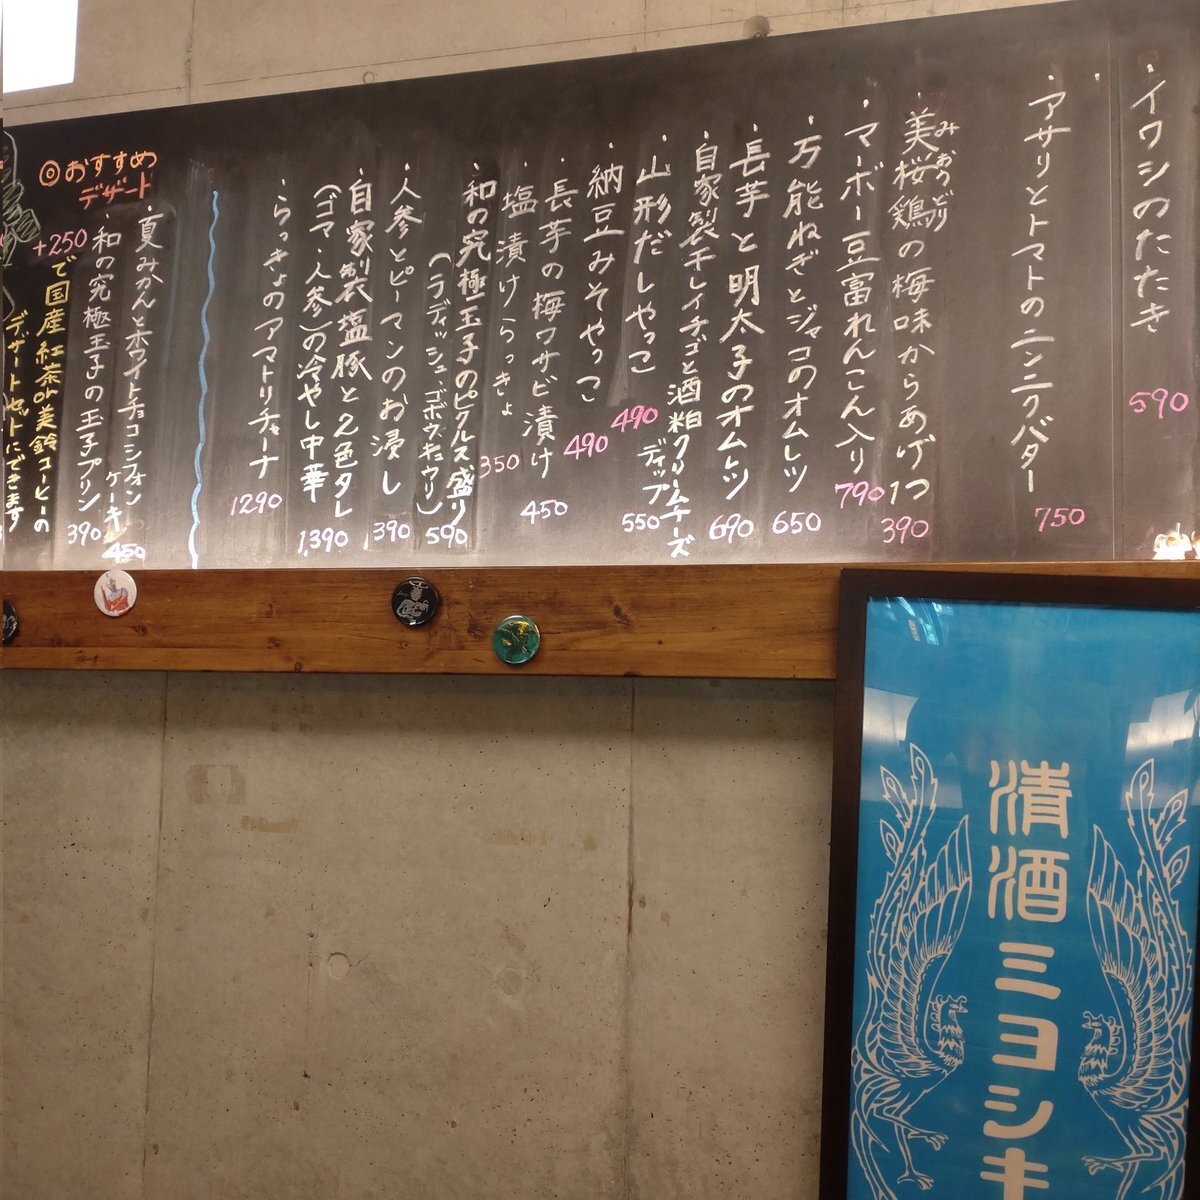 ・イワシのたたき
590
・アサリとトマトのニンニクバター
750
みおうどり
・美桜鶏の梅味からあげ1つ
390
・マーボー豆富れんこん入り
790
・万能ねぎとジャコのオムレツ
650
・長芋と明太子のオムレツ
690
・自家製干しイチゴと酒粕クリームチーズ
ディップ
550
・山形だしやっこ
490
・納豆みそやっこ
490
・長芋の梅ワサビ漬け
450
・塩漬けらっきょ
350
・和の究極玉子のピクルス盛り
(ラディッシュ、ゴボウ、キュウリ)
590
・人参とピーマンのお浸し
390
・自家製塩豚と2色タレ
(ゴマ・人参)の冷やし中華
1,390
・らっきょのアマトリチャーナ
1290
◎おすすめ
デザート
・夏みかんとホワイトチョコシフォン
ケーキ
450
・和の究極玉子の玉子プリン
390
+250で国産紅茶or美鈴コーヒーの
デザートセットにできます
清酒ミヨシキ